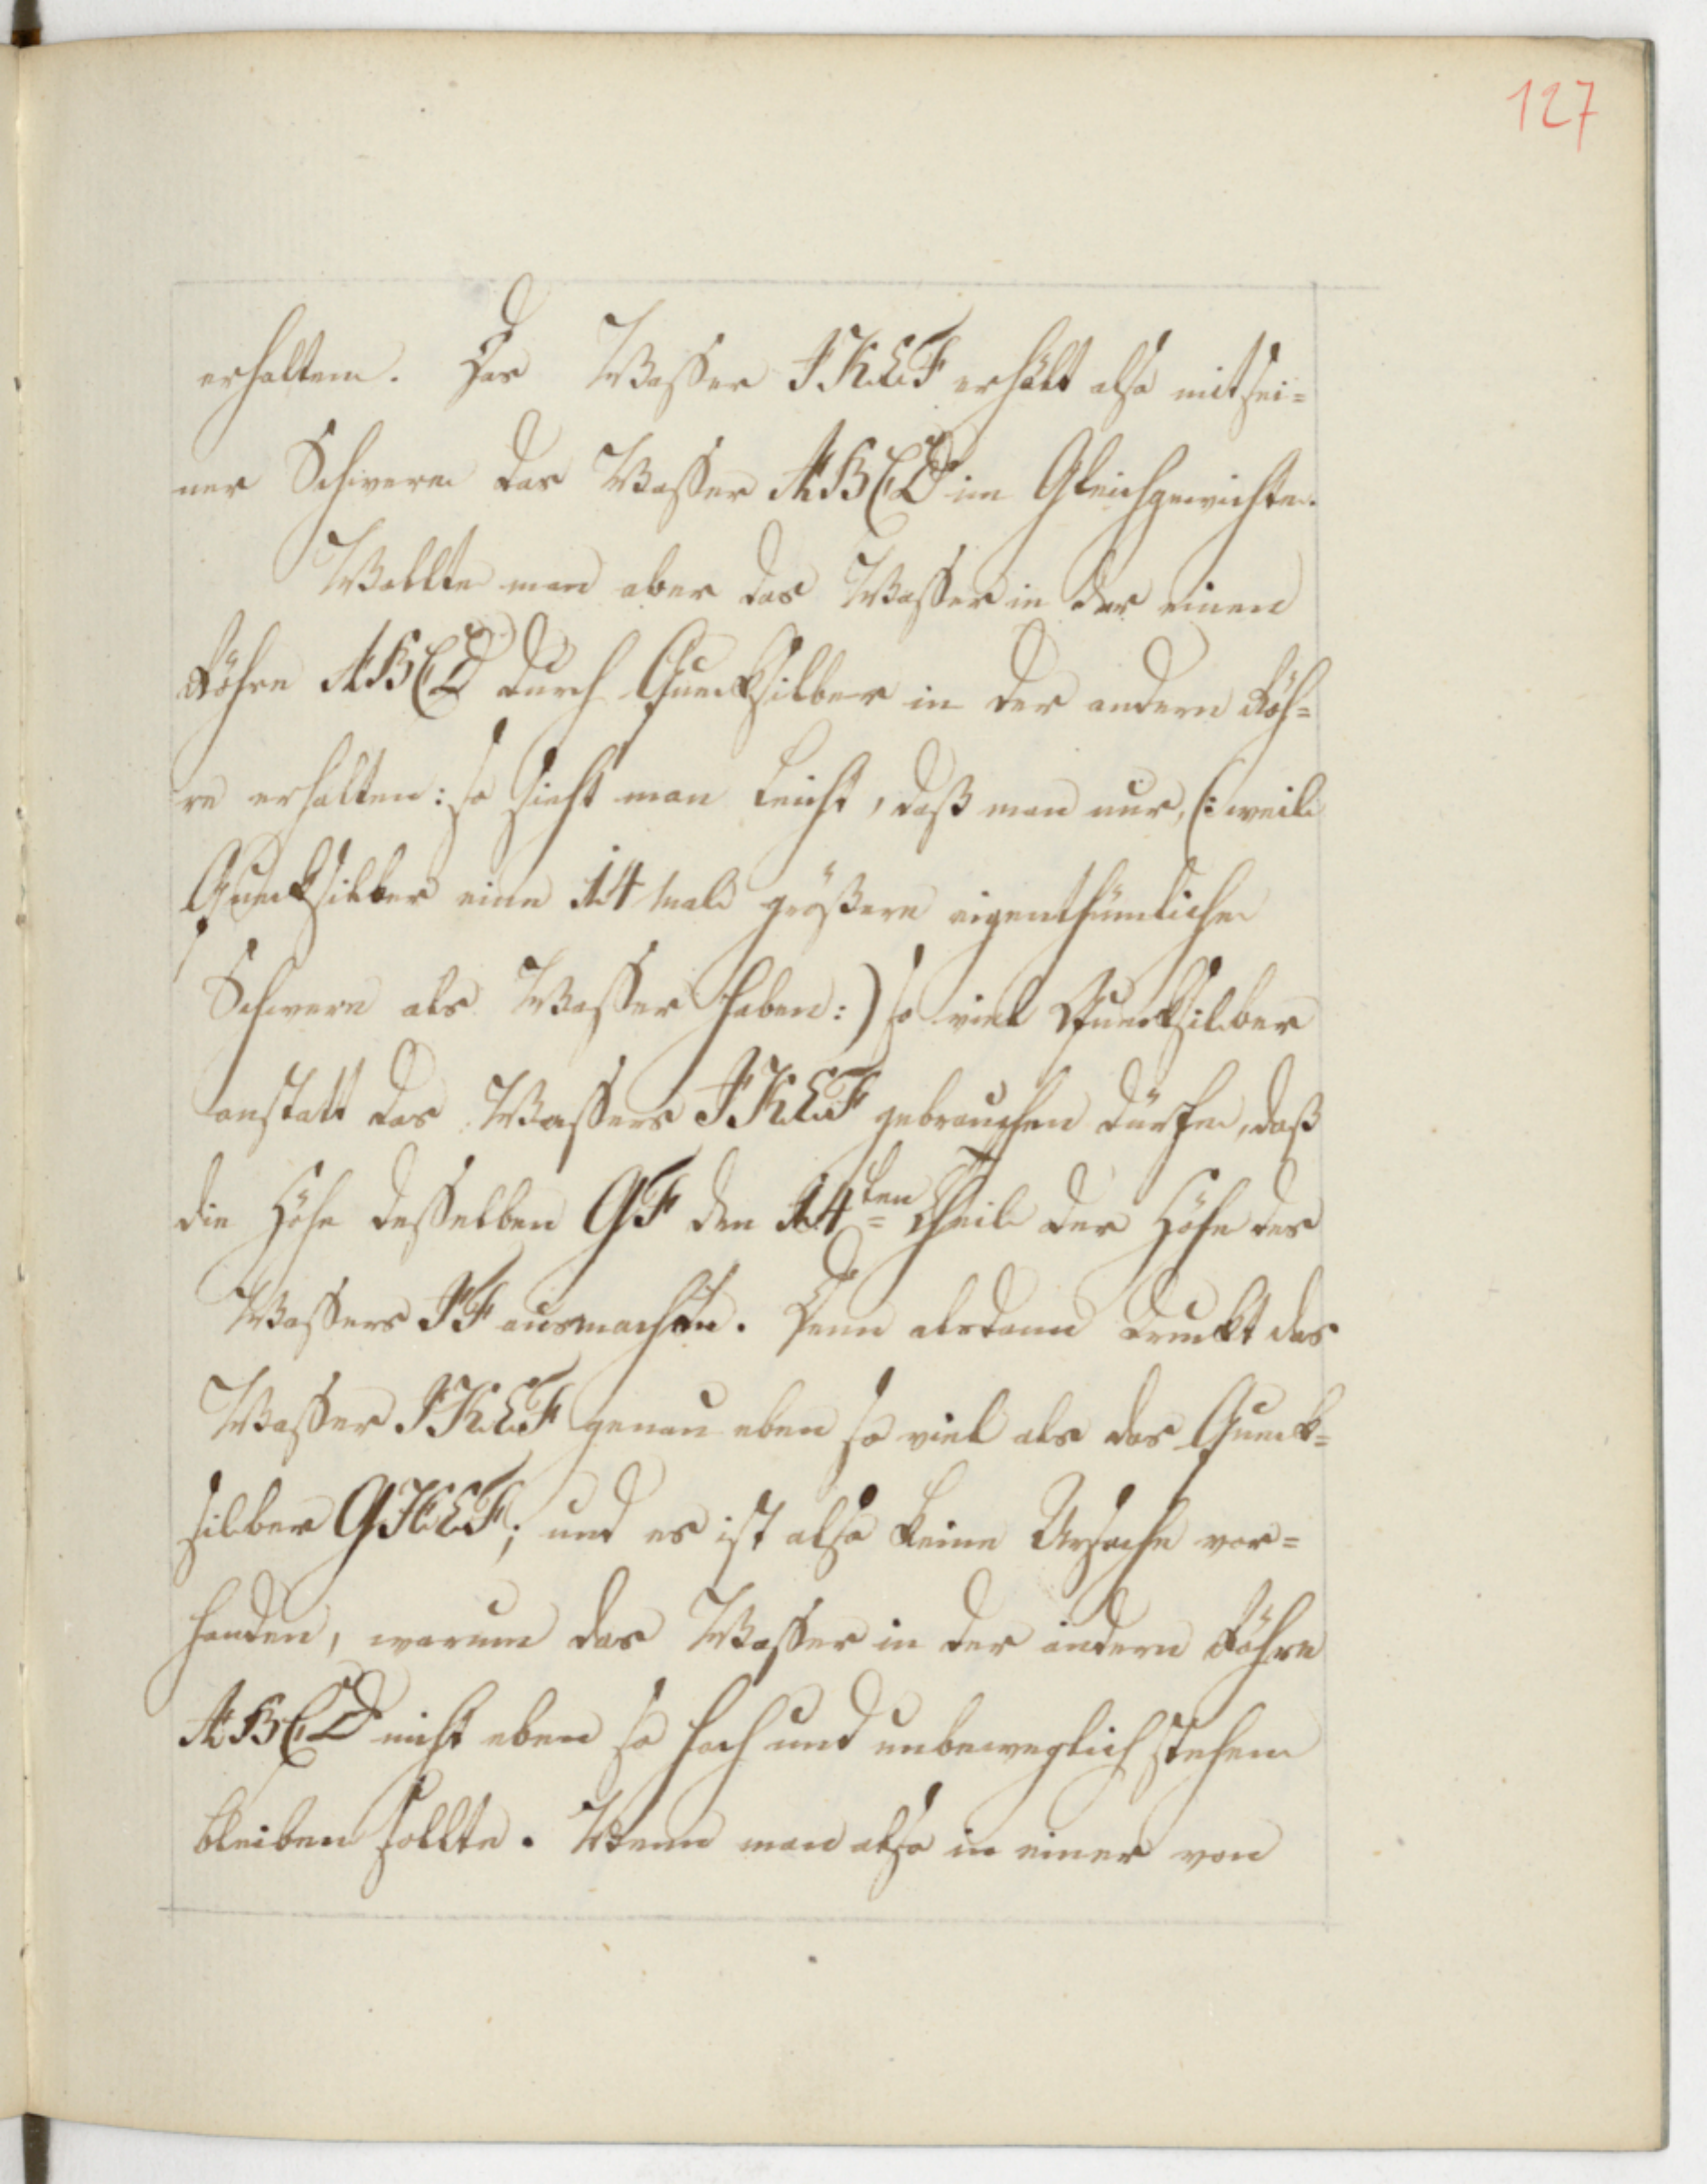 127
erhalten. Das Wasser IKEF erhält also mit sei=
ner Schwere das Wasser ABCD im Gleichgewichte.
Wollte man aber das Wasser in der einen
Röhre ABCD durch Quecksilber in der andern Röh=
re erhalten: so sieht man leicht, daß man nur, (: weil
Quecksilber eine 14 mal größere eigenthümliche
Schwere als Wasser haben:) so viel Quecksilber
anstatt des Wassers IKEF gebrauchen dürfe, daß
die Höhe desselben GF den 14ten= Theil der Höhe des
Wassers IF ausmachte. Denn alsdann druckt das
Wasser IKEF genau eben so viel als das Queck=
silber GHEF; und es ist also keine Ursache vor=
handen, warum das Wasser in der andern Röhre
ABCD nicht eben so hoch und unbeweglich stehen
bleiben sollte. Wenn man also in einer von